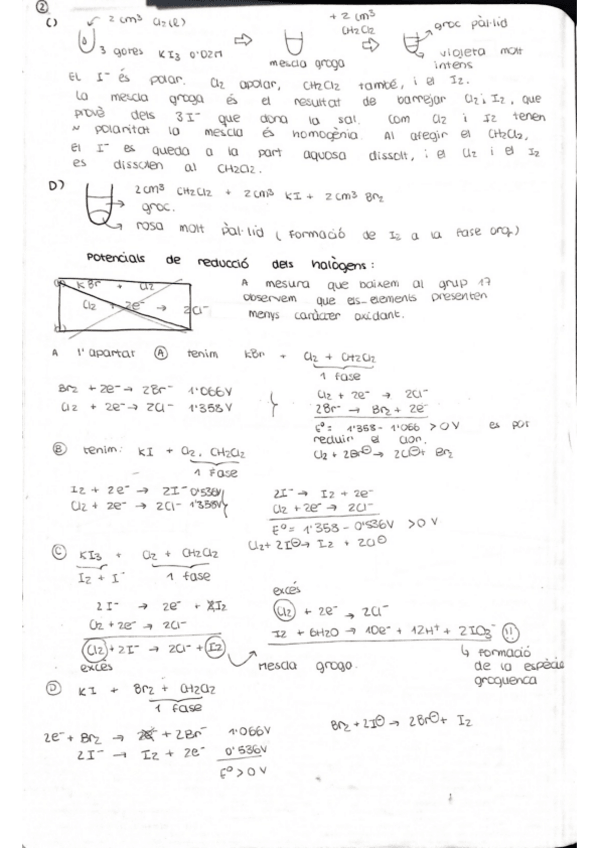 ②
C) 2 cm³ Cl2(l)
3 gotes KI3 0'02M
mescla groga
+ 2 cm³
CH2Cl2
groc pàl·lid
violeta molt
intens
El I⁻ és polar. Cl2 apolar, CH2Cl2 també, i el I2.
La mescla groga és el resultat de barrejar Cl2 i I2, que
prové dels 3I⁻ que dona la sal. Com Cl2 i I2 tenen
~ polaritat la mescla és homogènia. Al afegir el CH2Cl2,
el I⁻ es queda a la part aquosa dissolt, i el Cl2 i el I2
es dissolen al CH2Cl2.
D) 2cm³ CH2Cl2 + 2cm³ KI + 2cm³ Br2
groc.
rosa molt pàl·lid (formació de I2 a la fase org.)
Potencials de reducció dels halògens:
KBr + Cl2
Cl2 + 2e⁻ → 2Cl⁻
A mesura que baixem al grup 17
observem que els elements presenten
menys caràcter oxidant.
A l'apartat Ⓐ tenim KBr + Cl2 + CH2Cl2
1 fase
Br2 + 2e⁻ → 2Br⁻ 1'066V
Cl2 + 2e⁻ → 2Cl⁻ 1'358V
Cl2 + 2e⁻ → 2Cl⁻
2Br⁻ → Br2 + 2e⁻
E° = 1'358 - 1'066 > 0V es pot
reduir el clor.
Cl2 + 2Br⊖ → 2Cl⊖ + Br2
Ⓑ tenim: KI + Cl2, CH2Cl2
1 Fase
I2 + 2e⁻ → 2I⁻ 0'536V
Cl2 + 2e⁻ → 2Cl⁻ 1'358V
2I⁻ → I2 + 2e⁻
Cl2 + 2e⁻ → 2Cl⁻
E° = 1'358 - 0'536V > 0V
Cl2 + 2I⊖ → I2 + 2Cl⊖
Ⓒ KI3 + Cl2 + CH2Cl2
I2 + I⁻ 1 fase
2I⁻ → 2e⁻ + I2
Cl2 + 2e⁻ → 2Cl⁻
Cl2 + 2I⁻ → 2Cl⁻ + I2
excés
Mescla groga.
excés
Cl2 + 2e⁻ → 2Cl⁻
I2 + 6H2O → 10e⁻ + 12H⁺ + 2IO3⁻
↳ formació
de la espècie
groguenca
Ⓓ KI + Br2 + CH2Cl2
1 fase
2e⁻ + Br2 → 2Br⁻ 1'066V
2I⁻ → I2 + 2e⁻ 0'536V
E° > 0V
Br2 + 2I⊖ → 2Br⊖ + I2